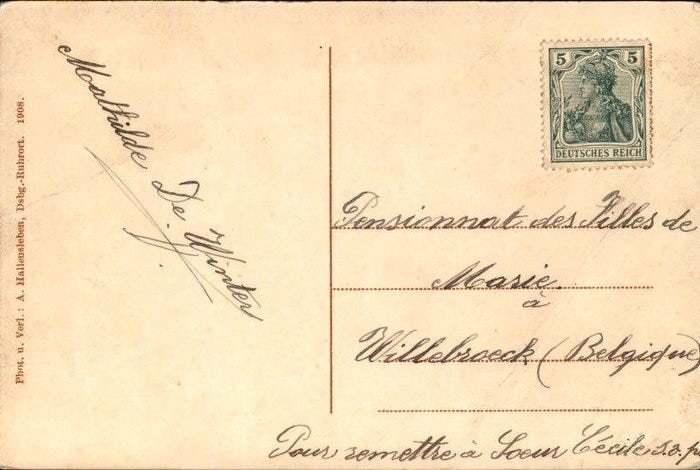 Phot. u. Verl.: A. Hallensleben, Dsbg.-Ruhrort. 1908.
Mathilde De Winter
5 5
DEUTSCHES REICH
Pensionnat des Filles de
Marie
à
Willebroeck (Belgique)
Pour remettre à Soeur Cécile s.v.p